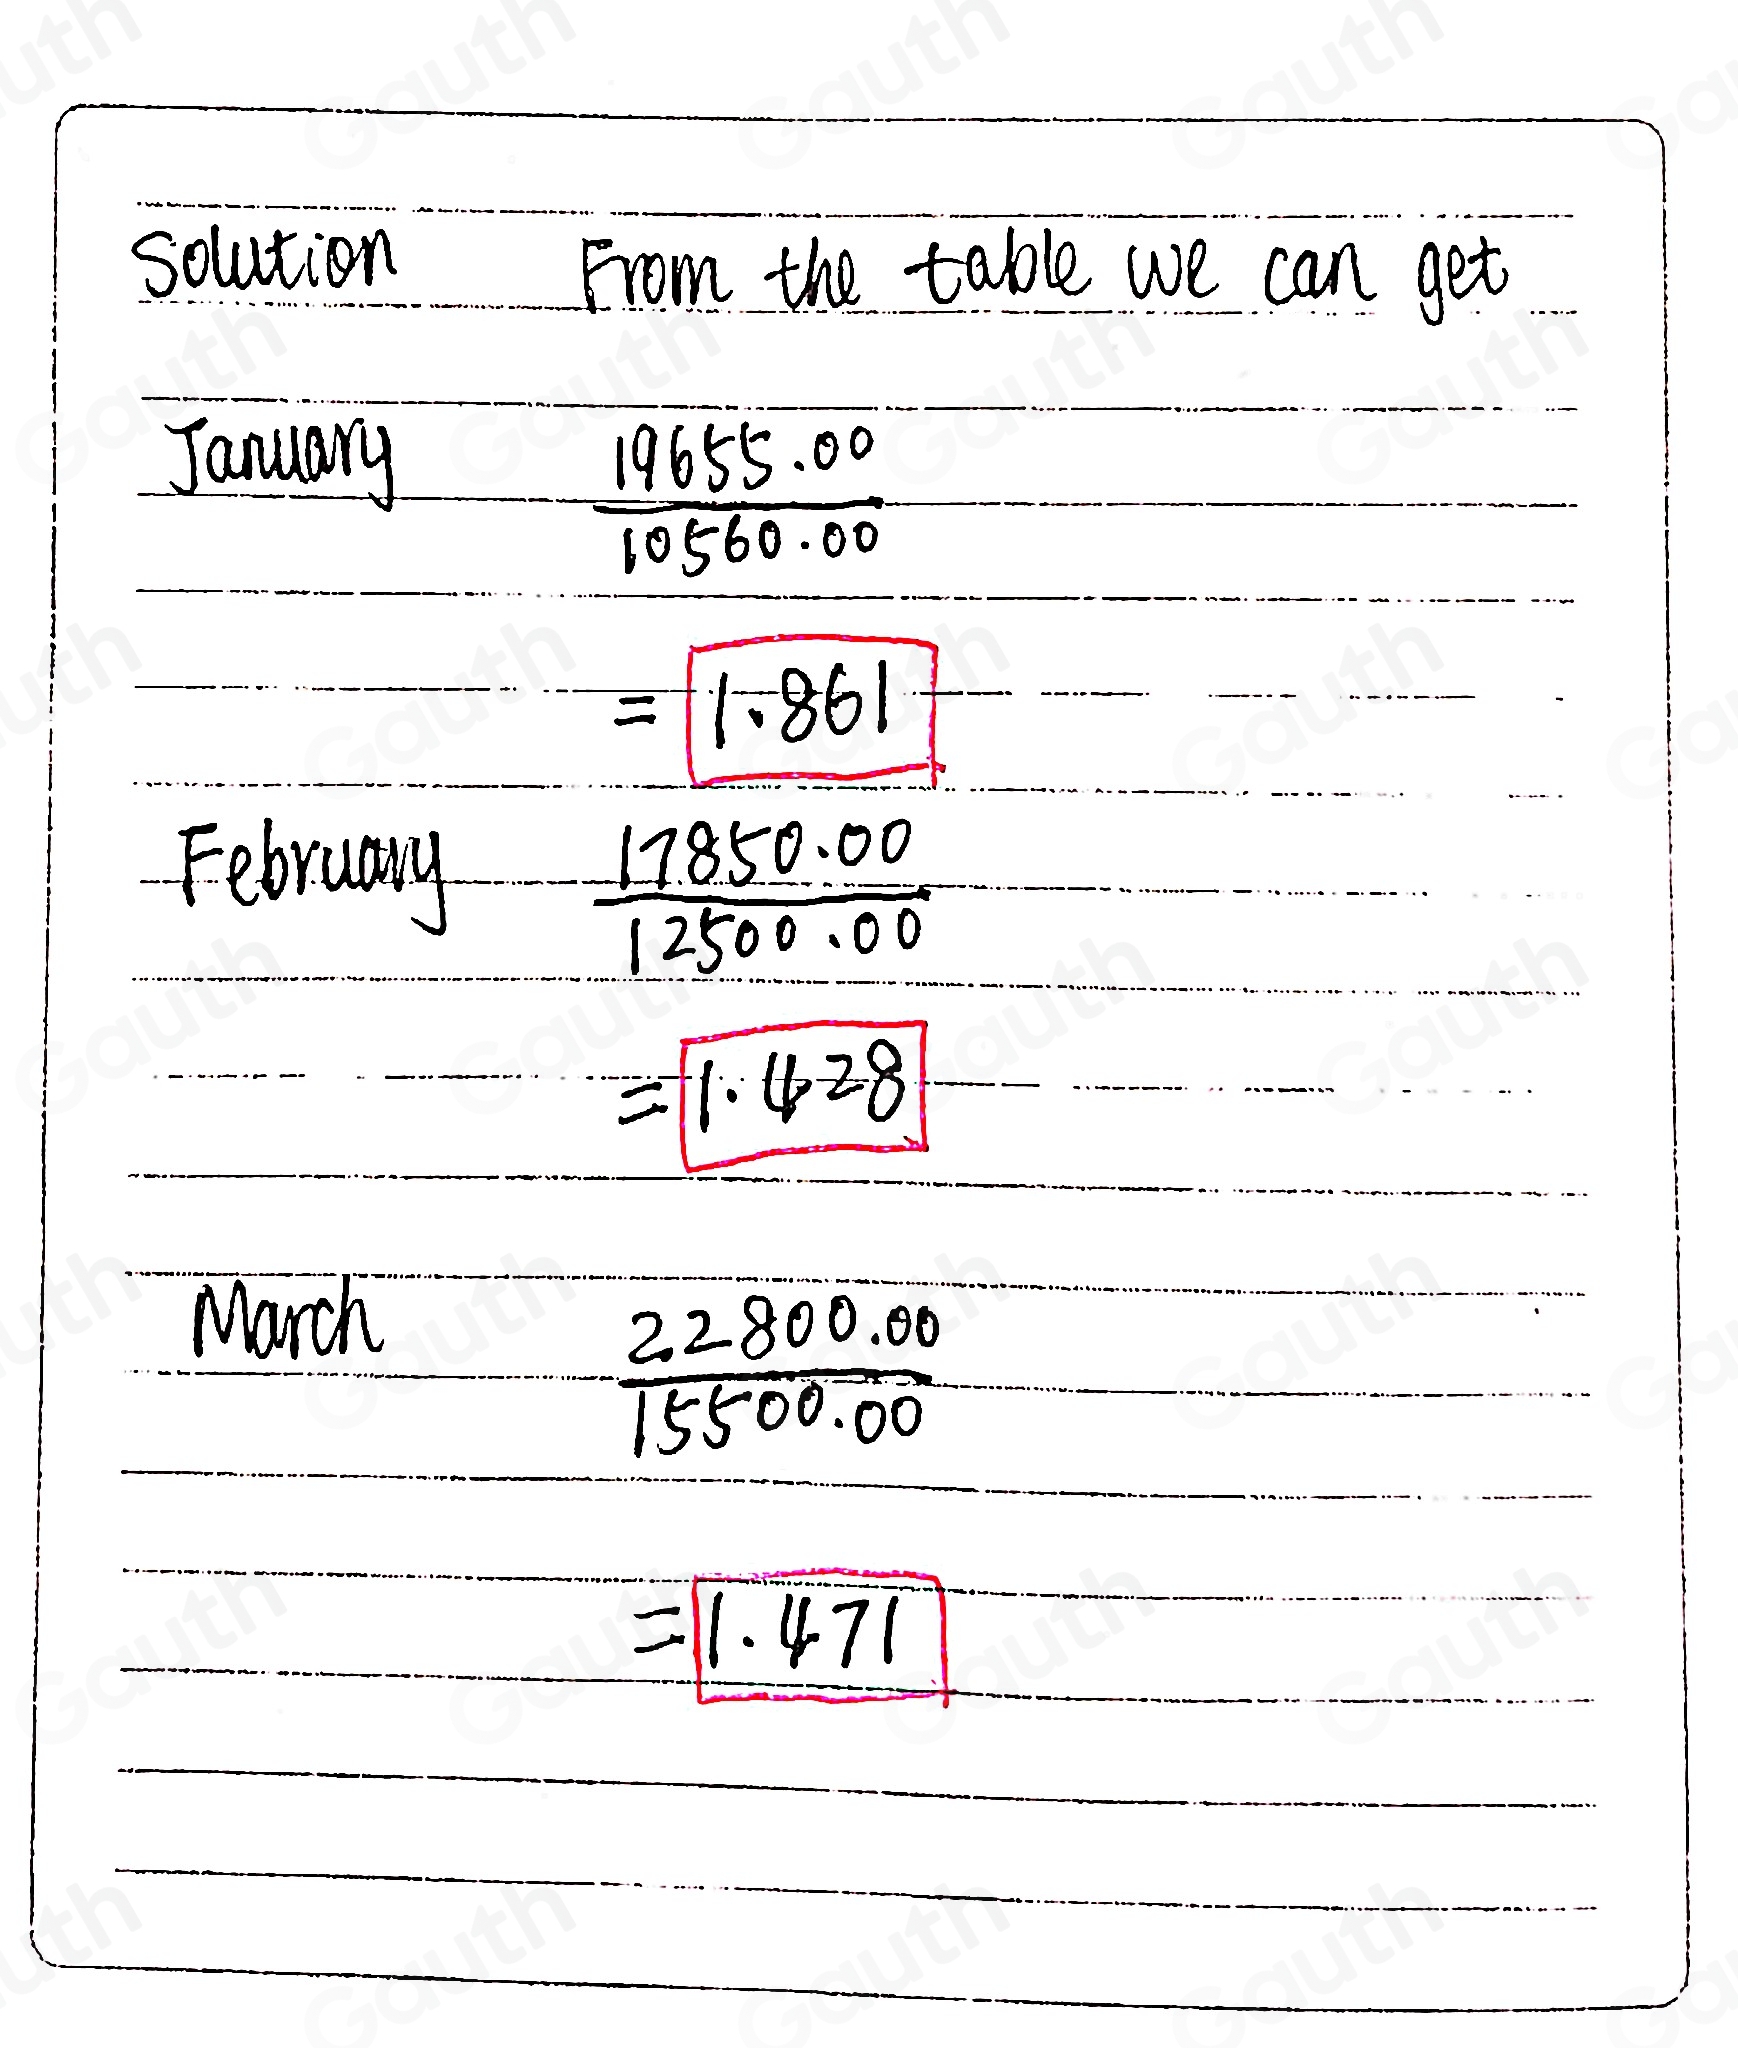 Solution From the table we can get
January 19655.00
10560.00
= 1.861
February 17850.00
12500.00
= 1.428
March 22800.00
15500.00
= 1.471